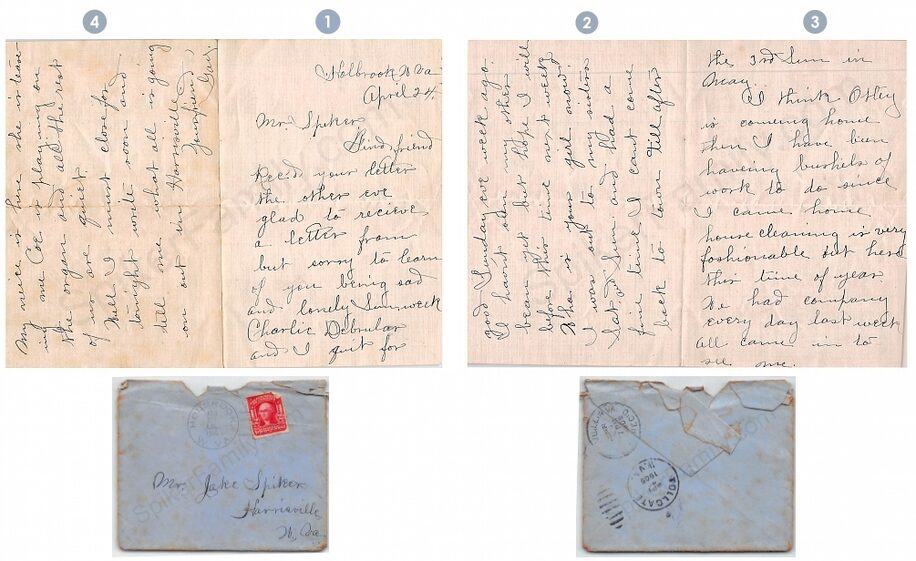 1
Holbrook W Va
April 24,
Mr. Spiker
Kind friend
Recd your letter
the other eve
glad to recieve
a letter from
but sorry to learn
of you being sad
and lonely Sunweek
Charlie Debrular
and I quit for
2
good Sunday eve week ago.
I havnt seen my other
beau yet but hope I will
before this time next week
Who is your girl now?
I was out to my sisters
Sat & Sun and had a
fine time I cant come
back to town till after
3
the 3rd Sun in
May
I think Ottey
is coming home
then I have been
haveing bushels of
work to do since
I came home
house cleaning is very
fashionable out here
this time of year
We had company
every day last week
all came in to
see me.
4
My niece is here she is leave-
ing me Coe is playing on
the organ and all the rest
of us are quiet
Well I must close for
tonight write soon and
till me what all is going
on out in Harrisville
Your friend
Gay.
Mr. Jake Spiker
Harrisville
W. Va
TOLLGATE
W.VA.